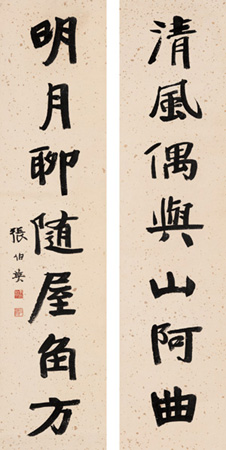 清風偶與山阿曲
明月聊隨屋角方
張伯英